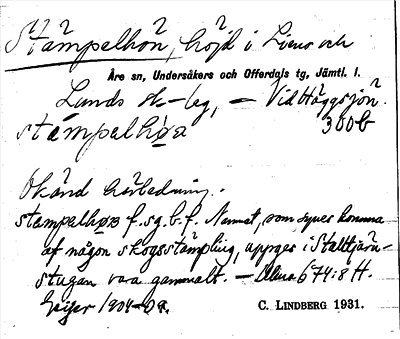 Stämpelhön, höjd i Liens och
Åre sn, Undersåkers och Offerdals tg, Jämtl. l.
Lunds sk-lag, – Vid Häggsjön.
stámpalhøn 300b
Okänd härledning.
stampalhøn f. sg. b. f. Namnet, som synes komma
af någon skogsstämpling, uppges i Stalltjärn-
stugan vara gammalt. – 674:8 H.
Geijer 1904–09.
C. LINDBERG 1931.